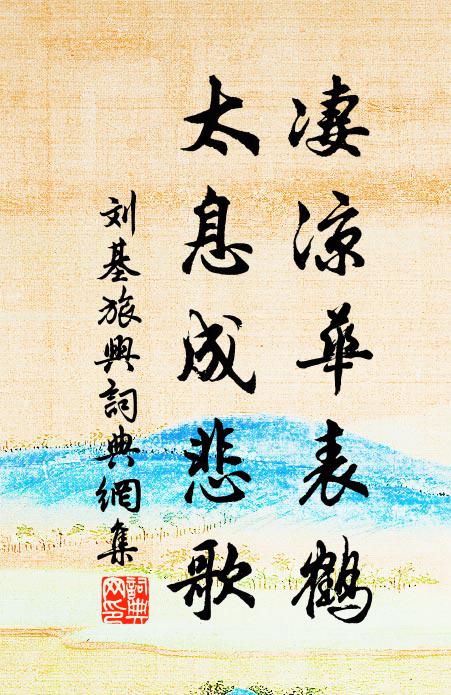 凄凉華表鶴
太息成悲歌
刘基旅興詞典網集
詞典网印